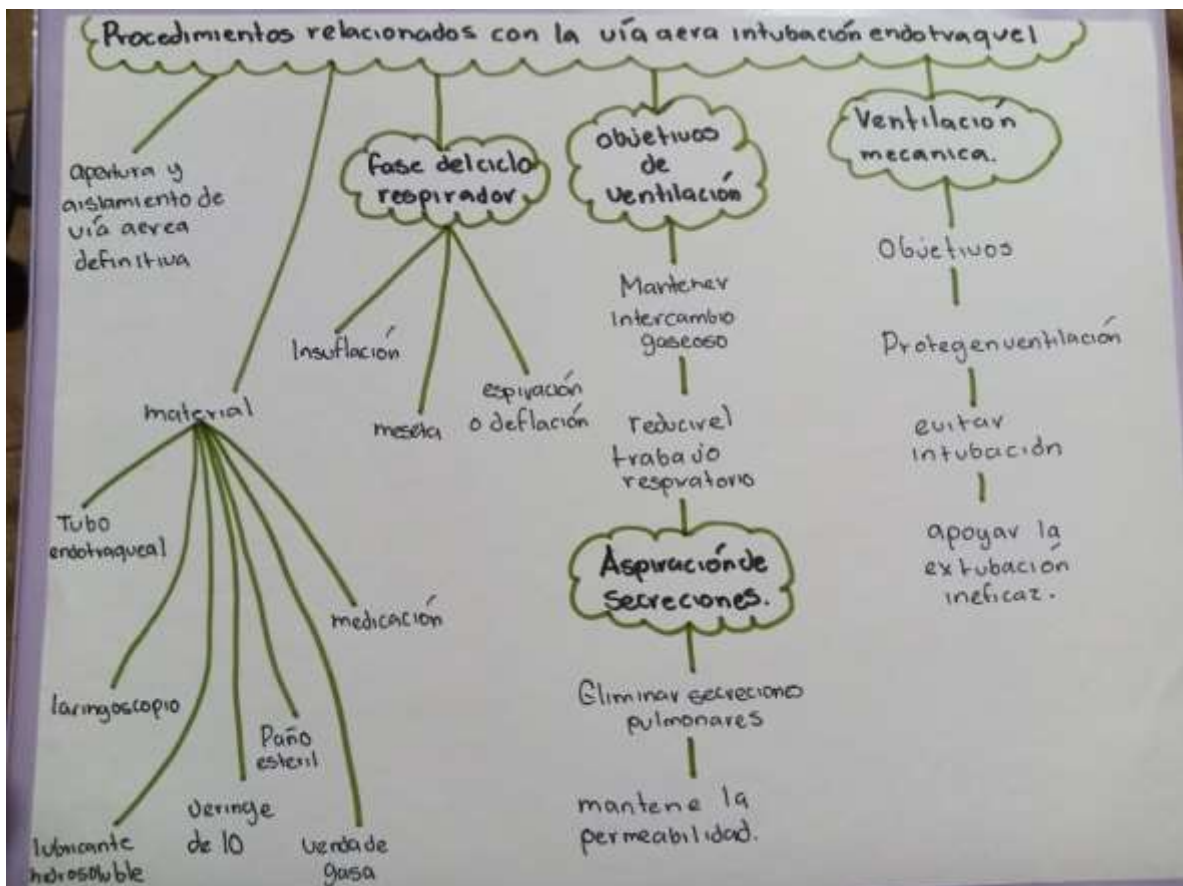 Procedimientos relacionados con la vía aera intubación endotraquel
apertura y
aislamiento de
vía aerea
definitiva
material
Tubo
endotraqueal
laringoscopio
lubricante
hidrosoluble
veringe
de 10
Paño
esteril
venda de
gasa
medicación
fase del ciclo
respirador
Insuflación
meseta
espiración
o deflación
objetivos
de
ventilación
Mantener
intercambio
gaseoso
reducir el
trabajo
respiratorio
Aspiración de
secreciones.
Eliminar secreciono
pulmonares
mantene la
permeabilidad.
Ventilación
mecanica.
Objetivos
Protegen ventilación
evitar
intubación
apoyar la
extubación
ineficaz.